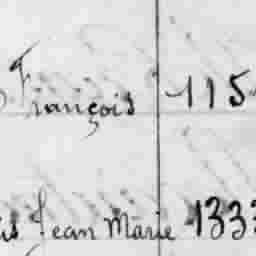 François 115
Jean Marie 133